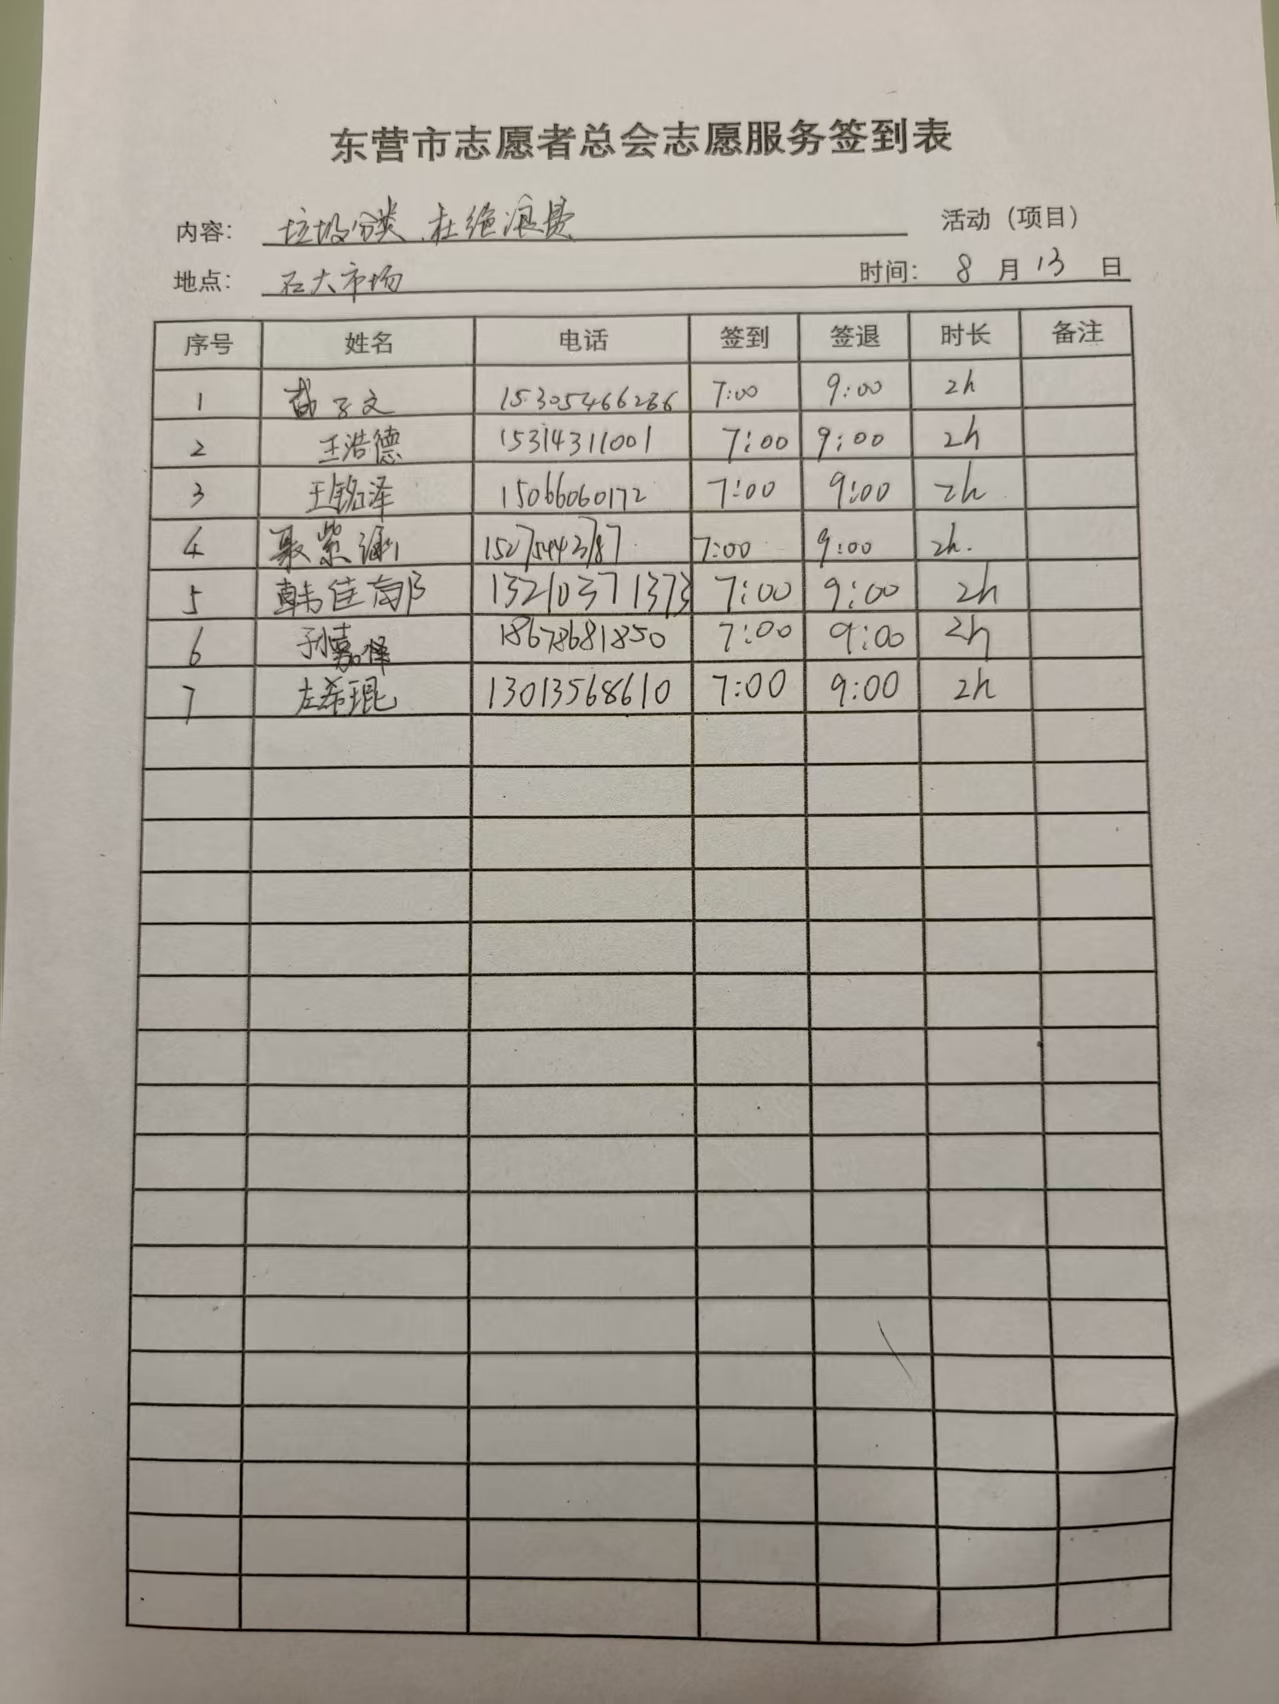 东营市志愿者总会志愿服务签到表
内容： 垃圾分类 杜绝浪费 活动（项目）
地点： 石大市场 时间： 8 月 13 日
序号 姓名 电话 签到 签退 时长 备注
1 子文 15305466266 7:00 9:00 2h
2 王浩德 15314311001 7:00 9:00 2h
3 王铭泽 15066060172 7:00 9:00 2h
4 聂紫涵 15275443787 7:00 9:00 2h.
5 韩佳 13210371373 7:00 9:00 2h
6 孙嘉怿 18678681850 7:00 9:00 2h
7 左希琨 13013568610 7:00 9:00 2h